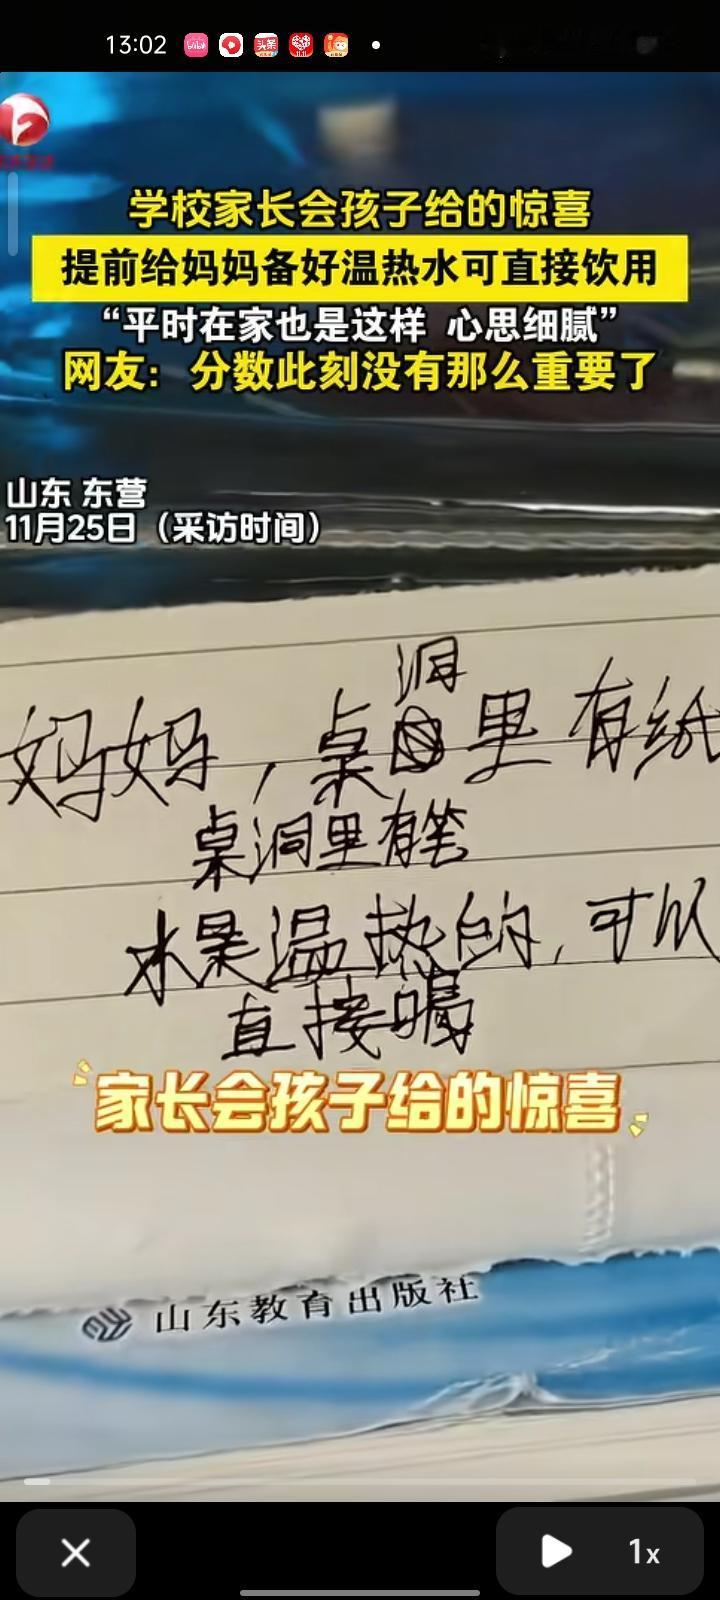 13:02
学校家长会孩子给的惊喜
提前给妈妈备好温热水可直接饮用
“平时在家也是这样 心思细腻”
网友：分数此刻没有那么重要了
山东 东营
11月25日（采访时间）
洞
妈妈，桌里有纸
桌洞里有笔
水是温热的，可以
直接喝
家长会孩子给的惊喜
山东教育出版社
1x